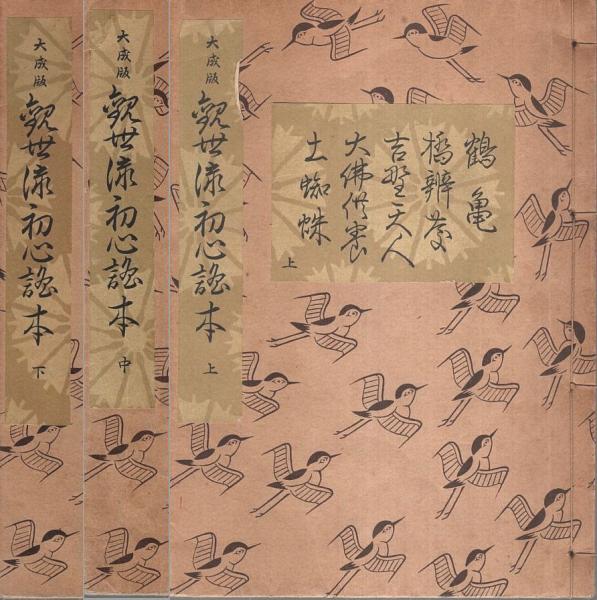 鶴亀
橋辨慶
吉野天人
大佛供養
土蜘蛛
上
大成版
觀世流初心謠本
上
大成版
觀世流初心謠本
中
大成版
觀世流初心謠本
下